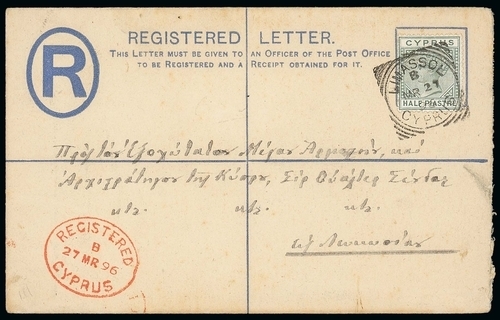 REGISTERED LETTER.
THIS LETTER MUST BE GIVEN TO AN OFFICER OF THE POST OFFICE
TO BE REGISTERED AND A RECEIPT OBTAINED FOR IT.
R
CYPRUS
HALF PIASTRE
LIMASSOL
B
MR 27
CYPRUS
Πρὸς τὸν Ἐξοχώτατον Μέγαν Ἁρμοστὴν, καὶ
Ἀρχιστράτηγον τῆς Κύπρου, Σὲρ Οὐάλτερ Σένδαλ
κτλ. κτλ. κτλ.
εἰς Λευκωσίαν
REGISTERED
B
27 MR 96
CYPRUS